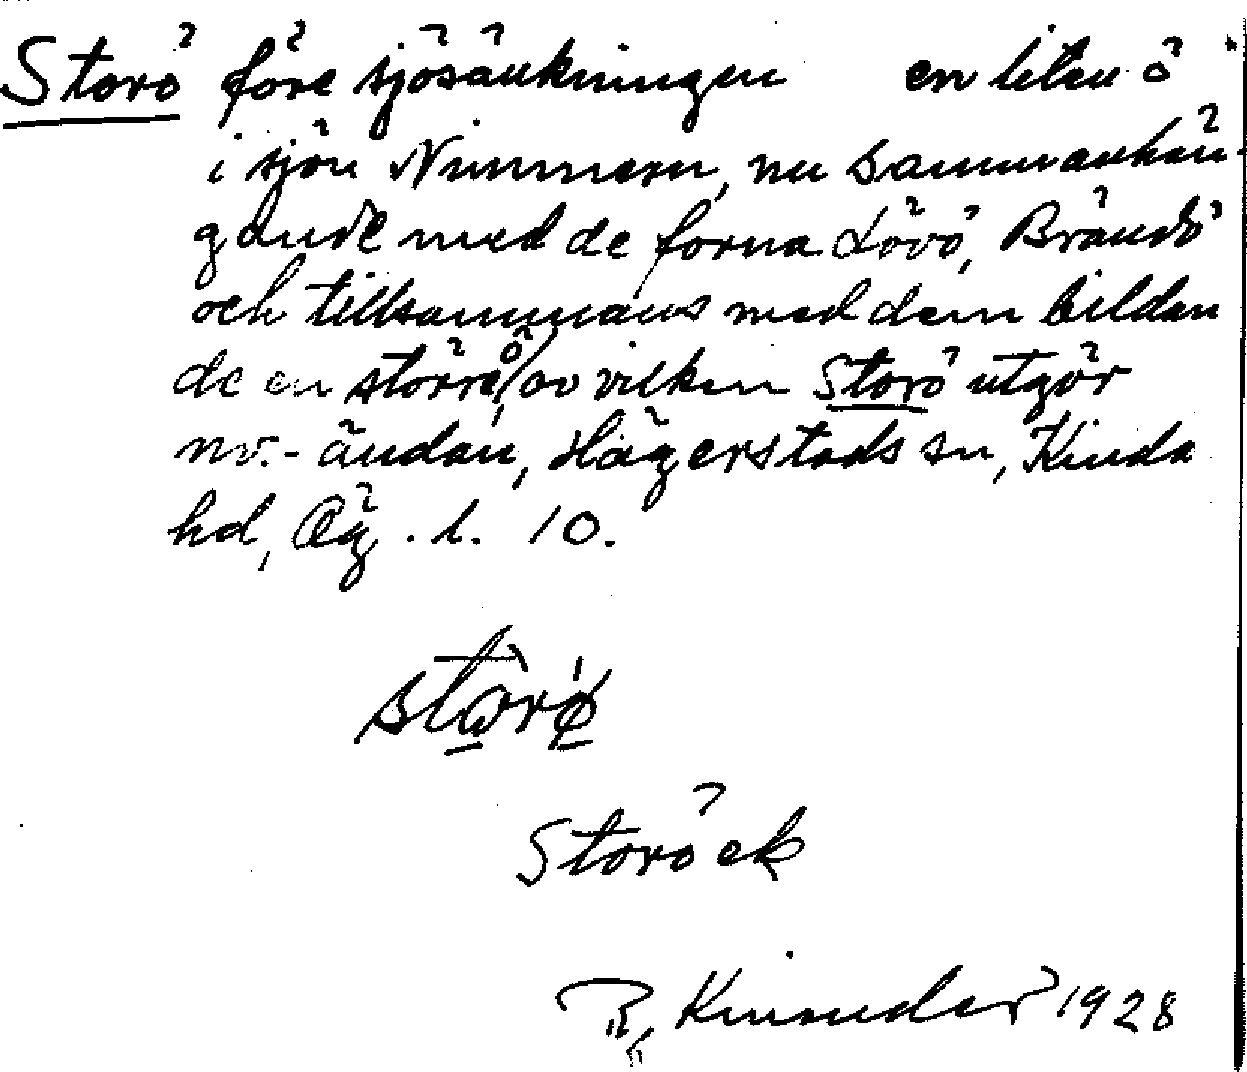 Storö före sjösänkningen en liten ö
i sjön Nimmern, nu sammanhän-
gande med de forna Lövö, Brändö
och tillsammans med dem bildan
de en större ö, av vilken Storö utgör
nv.-ändan, Hägerstads sn, Kinda
hd, Ög. l. 10.
storö
Storöek
1928